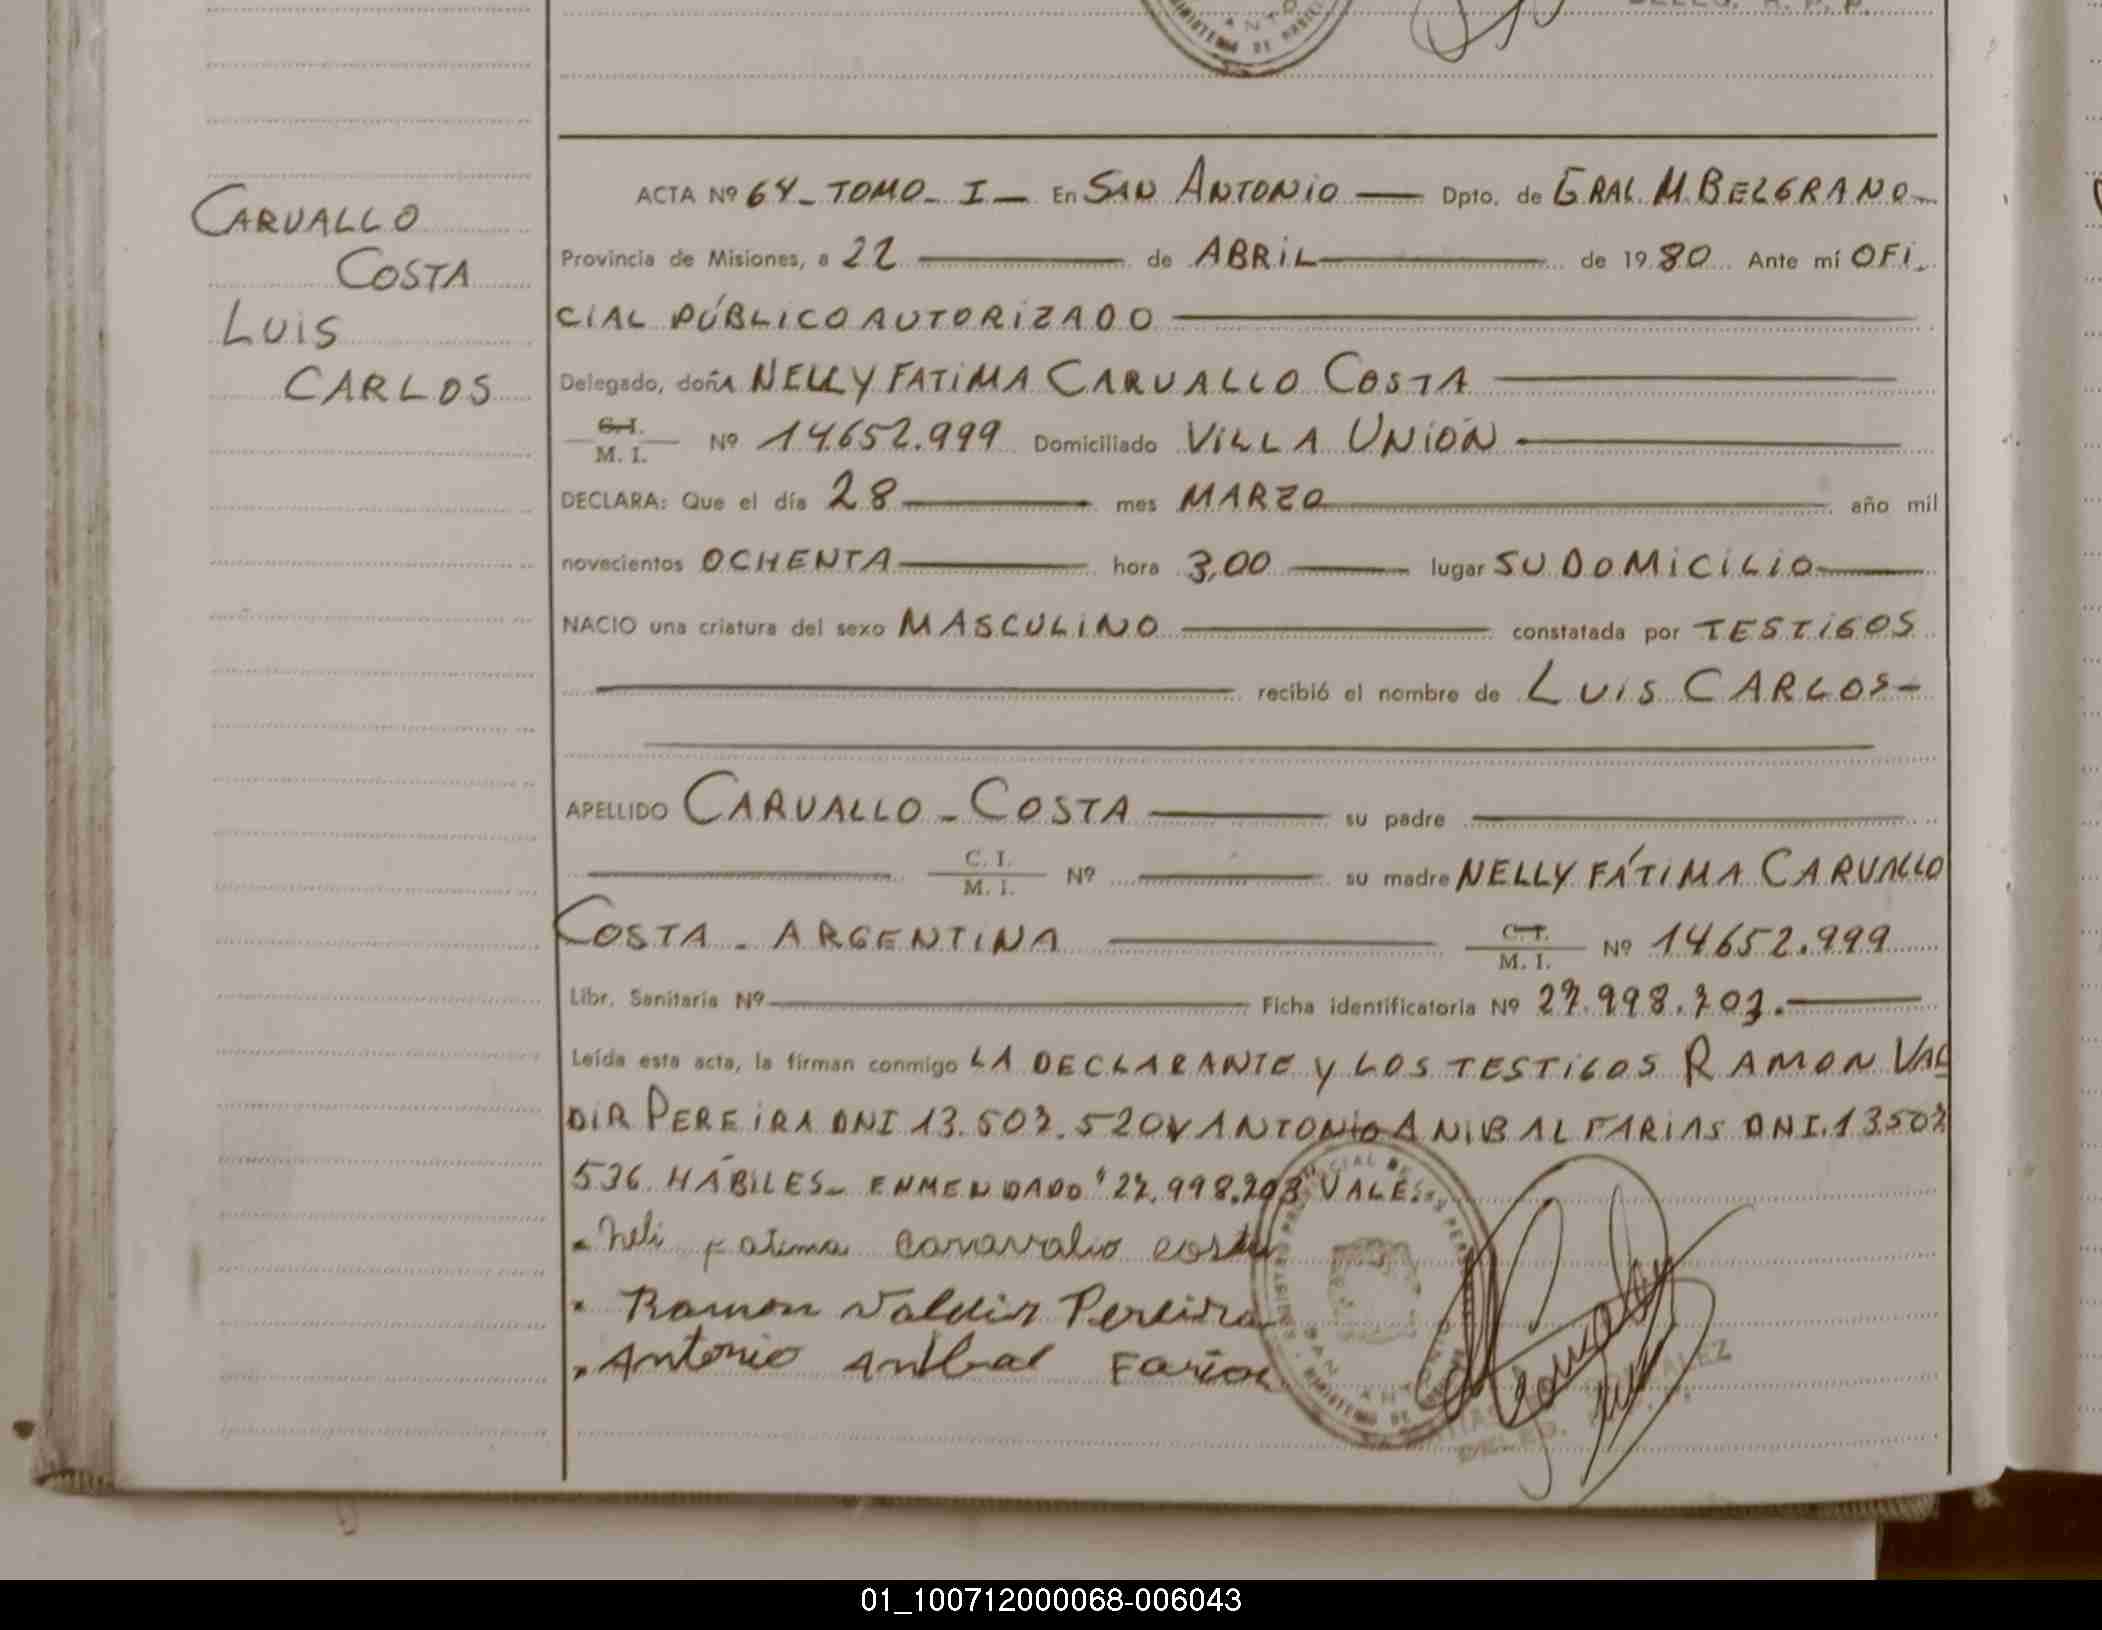 CARVALLO
COSTA
LUIS
CARLOS
ACTA Nº 64 - TOMO - I - En SAN ANTONIO Dpto. de GRAL. M. BELGRANO
Provincia de Misiones, a 22 de ABRIL de 1980 Ante mí OFI-
CIAL PÚBLICO AUTORIZADO
Delegado, doña NELLY FATIMA CARVALLO COSTA
C.I. M.I. Nº 14.652.999 Domiciliado VILLA UNIÓN
DECLARA: Que el día 28 mes MARZO año mil
novecientos OCHENTA hora 3,00 lugar SU DOMICILIO
NACIO una criatura del sexo MASCULINO constatada por TESTIGOS
recibió el nombre de LUIS CARLOS-
APELLIDO CARVALLO - COSTA su padre
C.I. M.I. Nº su madre NELLY FÁTIMA CARVALLO
COSTA - ARGENTINA C.I. M.I. Nº 14.652.999
Libr. Sanitaria Nº Ficha identificatoria Nº 27.998.703.
Leída esta acta, la firman conmigo LA DECLARANTE Y LOS TESTIGOS RAMON VAL
DIR PEREIRA DNI 13.507.520 Y ANTONIO ANIBAL FARIAS DNI. 13.507
536 HÁBILES - ENMENDADO "27.998.703" VALE.
Neli Fatima Caravalio costa
Ramon Valdir Pereira
Antonio Anibal Farias
SAN ANTONIO
MINISTERIO DE
DELEG.
01_100712000068-006043